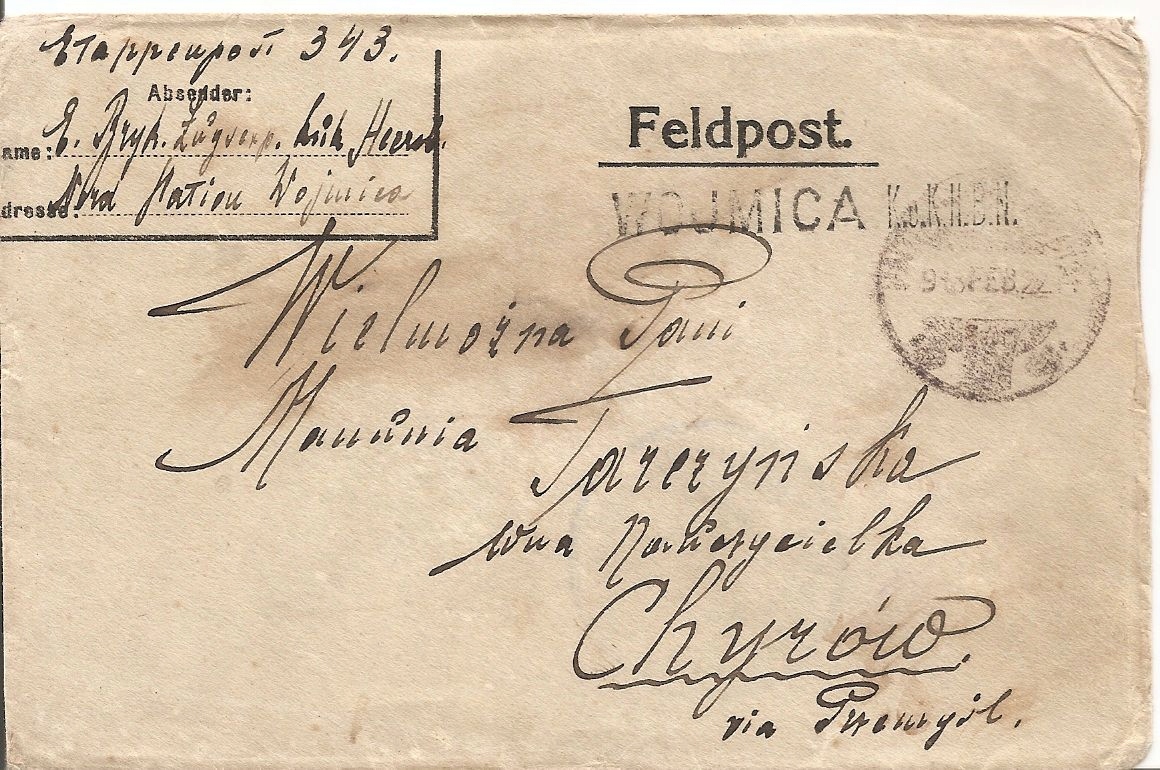 Etappenpost 343.
Absender:
ame: E. Bryk. Zugsexp. kuk Heeresb.
dresse: Nord Station Wojmica
Feldpost.
WOJMICA K.u.K.H.B.N.
FEB.
Wielmożna Pani
Manunia Tarczyńska
wna Nauczycielka
Chyrów.
via Przemyśl.